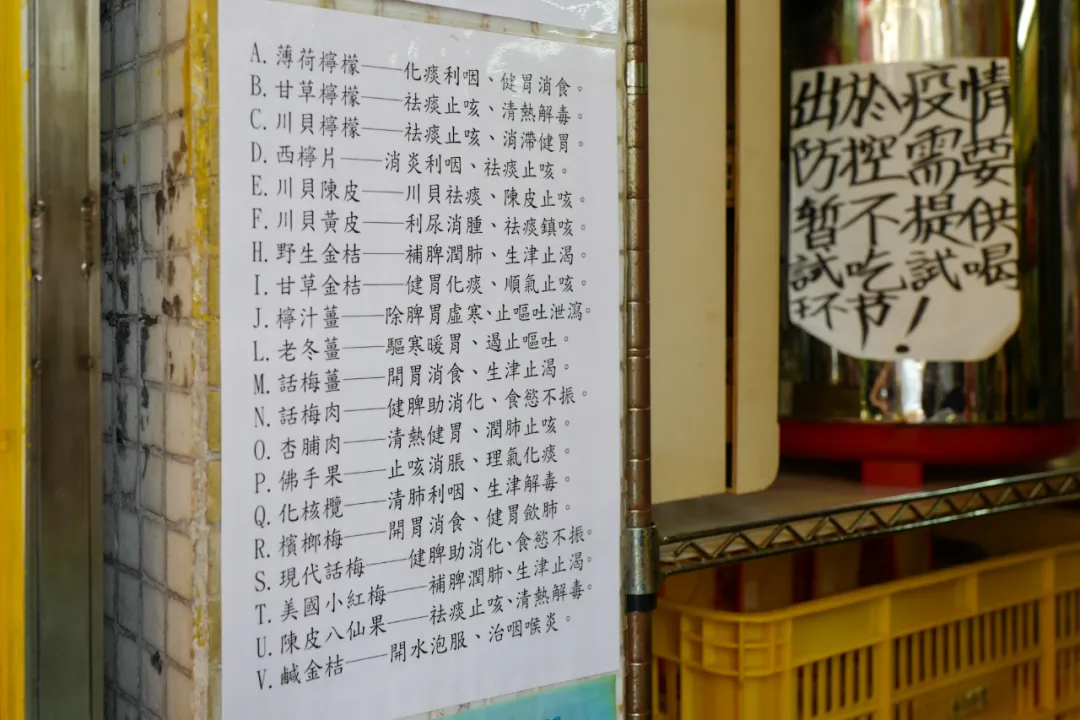 A. 薄荷檸檬——化痰利咽、健胃消食。
B. 甘草檸檬——祛痰止咳、清熱解毒。
C. 川貝檸檬——祛痰止咳、消滯健胃。
D. 西檸片——消炎利咽、祛痰止咳。
E. 川貝陳皮——川貝祛痰、陳皮止咳。
F. 川貝黃皮——利尿消腫、祛痰鎮咳。
H. 野生金桔——補脾潤肺、生津止渴。
I. 甘草金桔——健胃化痰、順氣止咳。
J. 檸汁薑——除脾胃虛寒、止嘔吐泄瀉。
L. 老冬薑——驅寒暖胃、遏止嘔吐。
M. 話梅薑——開胃消食、生津止渴。
N. 話梅肉——健脾助消化、食慾不振。
O. 杏脯肉——清熱健胃、潤肺止咳。
P. 佛手果——止咳消脹、理氣化痰。
Q. 化核欖——清肺利咽、生津解毒。
R. 檳榔梅——開胃消食、健胃飲肺。
S. 現代話梅——健脾助消化、食慾不振。
T. 美國小紅梅——補脾潤肺、生津止渴。
U. 陳皮八仙果——祛痰止咳、清熱解毒。
V. 鹹金桔——開水泡服、治咽喉炎。
出於疫情
防控需要
暫不提供
試吃試喝
环节!